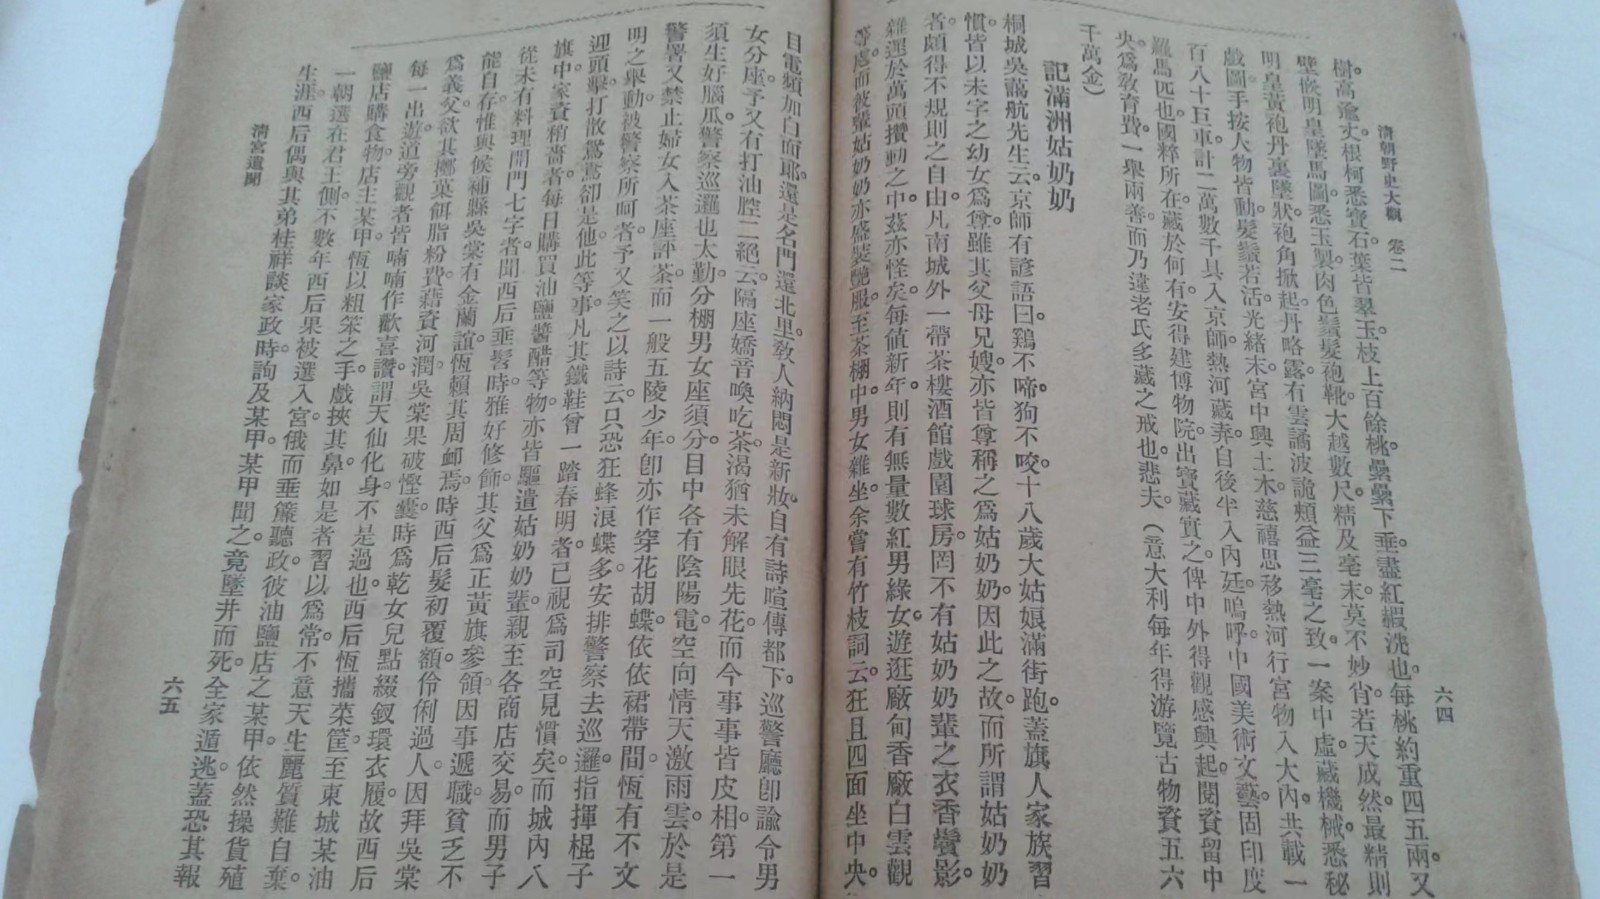 清朝野史大觀　卷二
六四
樹高逾丈。根柯悉寶石。葉皆翠玉。枝上百餘桃。纍纍下垂。盡紅緞洗也。每桃約重四五兩。又
壁嵌明皇墜馬圖。悉玉製。肉色鬚髮袍靴。大越數尺。精及毫末。莫不妙肖。若天成然。最精則
明皇黃袍丹裏。墜狀袍角掀起。丹略露。有雲譎波詭。頰益三毫之致。一案中虛。藏機械。悉秘
戲圖。手按人物皆動。髮鬚若活。光緒末。宮中興土木。慈禧思移熱河行宮物入大內。共載一
百八十巨車。計二萬數千具入京師。熱河藏弆。自後半入內廷。嗚呼。中國美術文藝。固印度
羅馬匹也。國粹所在。藏於何有。安得建博物院。出寶藏實之。俾中外得觀感興起。閱資留中
央爲敎育費。一舉兩善。而乃違老氏多藏之戒也。悲夫（意大利每年得游覽古物資五六
千萬金）
記滿洲姑奶奶
桐城吳靄航先生云。京師有諺語曰。鷄不啼。狗不咬。十八歲大姑娘滿街跑。蓋旗人家族習
慣。皆以未字之幼女爲尊。雖其父母兄嫂。亦皆尊稱之爲姑奶奶。因此之故。而所謂姑奶奶
者。頗得不規則之自由。凡南城外一帶茶樓酒館戲園球房。罔不有姑奶奶輩之衣香鬢影。
雜遝於萬頭攢動之中。茲亦怪矣。每值新年。則有無量數紅男綠女。遊逛廠甸香廠白雲觀
等處。而彼輩姑奶奶。亦盛裝艷服。至茶棚中。男女雜坐。余嘗有竹枝詞云。狂且四面坐中央。
目電頻加白面耶。還是名門還北里。敎人納悶是新妝。自有詩喧傳都下。巡警廳卽諭令男
女分座。予又有打油腔二絕云。隔座嬌音喚吃茶。渴猶未解眼先花。而今事事皆皮相。第一
須生好腦瓜。警察巡邏也太勤。分棚男女座須分。目中各有陰陽電。空向情天激雨雲。於是
警署又禁止婦女入茶座評茶。而一般五陵少年。卽亦作穿花胡蝶。依依裙帶間。恆有不文
明之舉動。被警察所呵者。予又笑之以詩云。只恐狂蜂浪蝶多。安排警察去巡邏。指揮棍子
迎頭擊。打散鴛鴦卻是他。此等事。凡其鐵鞋曾一踏春明者。已視爲司空見慣矣。而城內八
旗中家資稍嗇者。每日購買油鹽醬醋等物。亦皆驅遣姑奶奶輩。親至各商店交易。而男子
從未有料理開門七字者。聞西后垂髫時。雅好修飾。其父爲正黃旗參領。因事遞職。貧乏不
能自存。惟與候補縣吳棠有金蘭誼。恆賴其周䘏焉。時西后髮初覆額。伶俐過人。因拜吳棠
爲義父。欲其擲菓餌脂粉費。藉資河潤。吳棠果破慳囊。時爲乾女兒點綴釵環衣履。故西后
每一出遊。道旁觀者皆喃喃作歡喜讚。謂天仙化身不是過也。西后恆攜菜筐至東城某油
鹽店購食物。店主某甲。恆以粗笨之手。戲挾其鼻。如是者習以爲常。不意天生麗質難自棄。
一朝選在君王側。不數年西后果被選入宮。俄而垂簾聽政。彼油鹽店之某甲。依然操貨殖
生涯。西后偶與其弟桂祥談家政時。詢及某甲。某甲聞之。竟墜井而死。全家遁逃。蓋恐其報
清宮遺聞
六五